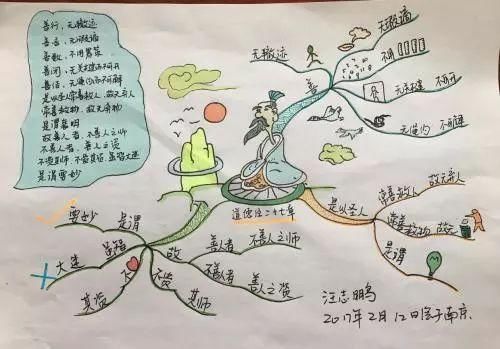 善行，无辙迹
善言，无瑕谪
善数，不用筹策
善闭，无关楗而不可开
善结，无绳约而不可解
是以圣人常善救人，故无弃人
常善救物，故无弃物
是谓袭明
故善人者，不善人之师
不善人者，善人之资
不贵其师，不爱其资，虽智大迷
是谓要妙
无辙迹
无瑕谪
不用
善
无关楗
不可开
无绳约
道德经二十七章
是以圣人
常善救人
故无弃人
常善救物
故无
是谓
要妙
是谓
大迷
虽智
故
善者
不善人之师
不善者
善人之资
不爱
其资
不贵
其师
汪志鹏
2017年2月12日绘于南京.